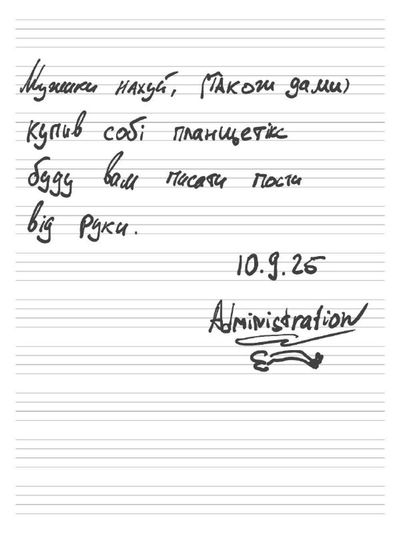 Мужики нахуй, (також дами)
купив собі планшетік
буду вам писати пости
від руки.
10.9.25
Administration